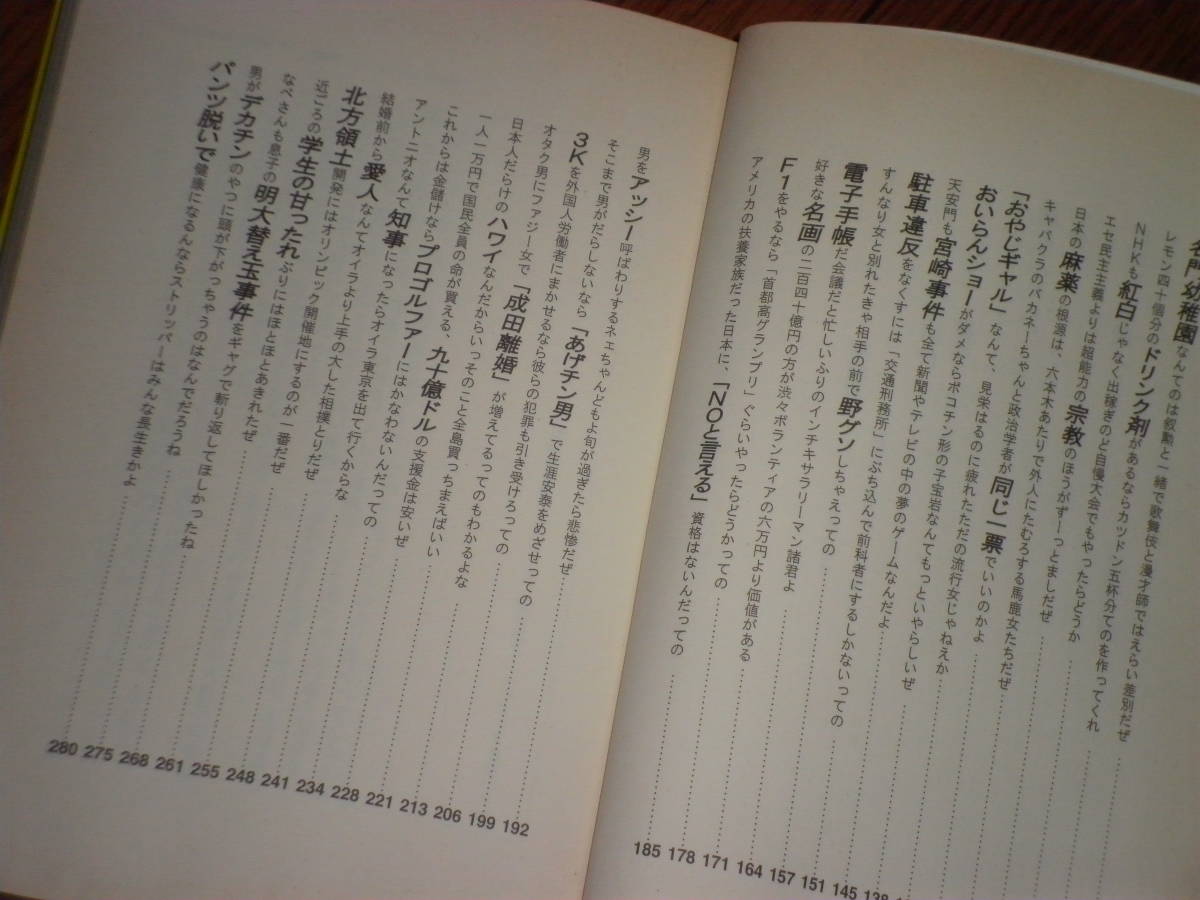 名門幼稚園なんてのは叙勲と一緒で歌舞伎と漫才師ではえらい差別だぜ
レモン四十個分のドリンク剤があるならカツドン五杯分てのを作ってくれ
NHKも紅白じゃなく出稼ぎのど自慢大会でもやったらどうか
エセ民主主義よりは超能力の宗教のほうがずーっとましだぜ
日本の麻薬の根源は、六本木あたりで外人にたむろする馬鹿女たちだぜ
キャバクラのバカネーちゃんと政治学者が同じ一票でいいのかよ
「おやじギャル」なんて、見栄はるのに疲れたただの流行女じゃねえか
おいらんショーがダメならポコチン形の子宝岩なんてもっといやらしいぜ
天安門も宮崎事件も全て新聞やテレビの中の夢のゲームなんだよ
駐車違反をなくすには「交通刑務所」にぶち込んで前科者にするしかないっての
すんなり女と別れたきゃ相手の前で野グソしちゃえっての 145
電子手帳だ会議だと忙しいふりのインチキサラリーマン諸君よ 151
好きな名画の二百四十億円の方が渋々ボランティアの六万円より価値がある 157
F1をやるなら「首都高グランプリ」ぐらいやったらどうかっての 164
アメリカの扶養家族だった日本に、「NOと言える」資格はないんだっての 171
178
185
男をアッシー呼ばわりするネエちゃんどもよ旬が過ぎたら悲惨だぜ 192
そこまで男がだらしないなら「あげチン男」で生涯安泰をめざせっての 199
3Kを外国人労働者にまかせるなら彼らの犯罪も引き受けろっての 206
オタク男にファジー女で「成田離婚」が増えてるってのもわかるよな 213
日本人だらけのハワイなんだからいっそのこと全島買っちまえばいい 221
一人一万円で国民全員の命が買える、九十億ドルの支援金は安いぜ 228
これからは金儲けならプロゴルファーにはかなわないんだっての 234
アントニオなんて知事になったらオイラ東京を出て行くからな 241
結婚前から愛人なんてオイラより上手の大した相撲とりだぜ 248
北方領土開発にはオリンピック開催地にするのが一番だぜ 255
近ごろの学生の甘ったれぶりにはほとほとあきれたぜ 261
なべさんも息子の明大替え玉事件をギャグで斬り返してほしかったね 268
男がデカチンのやつに頭が下がっちゃうのはなんでだろうね 275
パンツ脱いで健康になるんならストリッパーはみんな長生きかよ 280